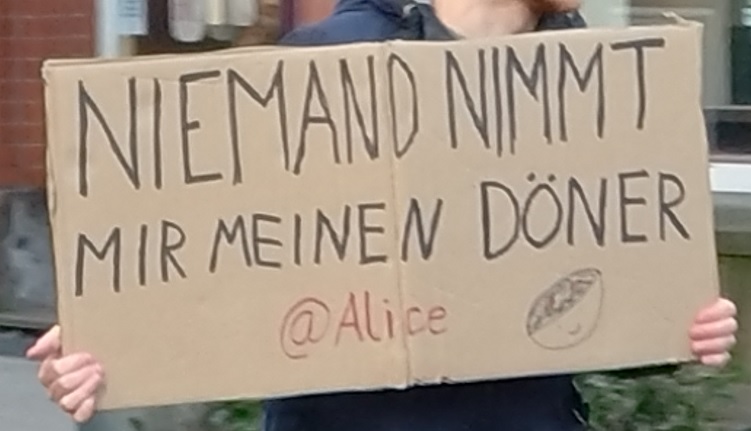 NIEMAND NIMMT
MIR MEINEN DÖNER
@Alice